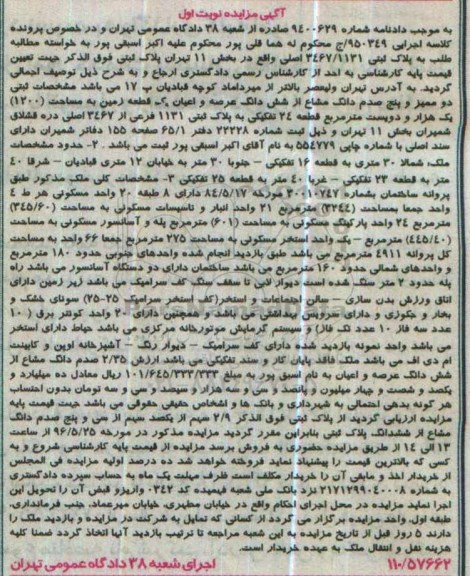 آگهی مزایده نوبت اول
به موجب دادنامه شماره ۹۴۰۰۶۲۹ صادره از شعبه ۳۸ دادگاه عمومی تهران و در خصوص پرونده
کلاسه اجرایی ۹۵۰۳۴۹/ج محکوم له هما قلی پور محکوم علیه اکبر اسبقی پور به خواسته مطالبه
طلب به پلاک ثبتی ۳۴۶۷/۱۱۳۱ اصلی واقع در بخش ۱۱ تهران پلاک ثبتی فوق الذکر جهت تعیین
قیمت پایه کارشناسی به احد از کارشناس رسمی دادگستری ارجاع و به شرح ذیل توصیف اجمالی
گردید. به آدرس تهران ولیعصر بالاتر از میرداماد کوچه قبادیان پ ۱۷ می باشد مشخصات ثبتی
دو ممیز و پنج صدم دانگ مشاع از شش دانگ عرصه و اعیان یک قطعه زمین به مساحت (۱۲۰۰)
یک هزار و دویست مترمربع قطعه ۲۴ تفکیکی به پلاک ثبتی ۱۱۳۱ فرعی از ۳۴۶۷ اصلی دره قشلاق
شمیران بخش ۱۱ تهران و ذیل ثبت شماره ۲۲۲۲۸ دفتر ۶۵/۱ صفحه ۱۵۵ دفاتر شمیران دارای
سند اصلی با شماره چاپی ۵۵۴۷۷۹ به نام آقای اکبر اسبقی پور ثبت می باشد . ۲- حدود مشخصات
ملک، شمالا ۳۰ متری به قطعه ۱۶ تفکیکی – جنوبا ۳۰ متر به خیابان ۱۲ متری قبادیان – شرقا ۴۰
متر به قطعه ۲۳ تفکیکی – غربا ۴۰ متر به قطعه ۲۵ تفکیکی ۳- مشخصات کلی ملک مذکور: طبق
پروانه ساختمان بشماره ۳۰۰۱۰۷۴۷ مورخه ۸۴/۵/۱۷ دارای ۸ طبقه ۲۰ واحد مسکونی هر ط ۴
واحد جمعا بمساحت (۳۲۴۴) مترمربع ۲۱ واحد انبار و تاسیسات مسکونی به مساحت (۳۴۵/۶۰)
مترمربع ۲۴ واحد پارکینگ مسکونی به مساحت (۶۰۱) مترمربع پله و آسانسور مسکونی به مساحت
(۴۴۵/۴۰) مترمربع – یک واحد استخر مسکونی به مساحت ۲۷۵ مترمربع جمعا ۶۶ واحد به مساحت
کل پروانه ۴۹۱۱ مترمربع می باشد طبق بازدید انجام شده واحدهای جنوبی حدود ۱۸۰ مترمربع
و واحدهای شمالی حدود ۱۶۰ مترمربع می باشد ساختمان دارای دو دستگاه آسانسور می باشد راه
پله حدود ۲ متر سنگ شده است دیوار لابی تا سقف سنگ کف سرامیک می باشد زیر زمین دارای
اتاق ورزش بدن سازی – سالن اجتماعات و استخر(کف استخر سرامیک ۲۵-۲۵) سونای خشک و
بخار و جکوزی و دارای سرویس بهداشتی می باشد و همچنین دارای ۲۰ واحد کونتر برق (۱۰
عدد سه فاز ۱۰ عدد تک فاز) و سیستم گرمایش موتورخانه مرکزی می باشد حیاط دارای استخر
می باشد واحد نمونه بازدید شده دارای کف سرامیک – دیوار رنگ – آشپزخانه اوپن و کابینت
ام دی اف می باشد ملک فاقد پایان کار و سند تفکیکی می باشد ارزش ۲/۳۵ صدم دانگ مشاع از
شش دانگ عرصه و اعیان به نام اسبق پور به مبلغ ۱۰۱/۶۴۵/۳۳۳/۳۳۳ ریال معادل ده میلیارد و
یکصد و شصت و چهار میلیون و پانصد و سی و سه هزار و سیصد و سی و سه تومان بدون احتساب
هر گونه بدهی احتمالی به شهرداری و بانک ها و اشخاص حقیقی حقوقی می باشد جهت قیمت پایه
مزایده ارزیابی گردید از پلاک ثبتی فوق الذکر ۲/۹ سهم از یکصد سهم از سی و پنج صدم دانگ
مشاع از ششدانگ پلاک ثبتی بنابراین مقرر گردید مزایده مذکور در مورخه ۹۶/۵/۲۵ از ساعت
۱۳ الی ۱۴ از طریق مزایده حضوری به فروش برسد مزایده از قیمت پایه کارشناسی شروع و به
کسی که بالاترین قیمت را پیشنهاد نماید فروخته خواهد شد ده درصد اولیه مزایده فی المجلس
از خریدار اخذ و مابقی آن را خریدار مکلف است ظرف مهلت یک ماه به حساب سپرده دادگستری
به شماره ۲۱۷۱۲۹۹۰۴۰۰۰۸ نزد بانک ملی شعبه فهمیده کد ۳۴۲۰ واریزو قبض آن را تحویل این
اجرا نماید مزایده در محل اجرای احکام واقع در خیابان مطهری، خیابان میرعماد، جنب فرمانداری،
طبقه اول، واحد مزایده برگزار می گردد از کسانی که تمایل به شرکت در مزایده و بازدید ملک را
دارند ۵ روز قبل از تاریخ مزایده به این شعبه مراجعه تا ترتیب بازدید آنها اتخاذ گردد ضمنا کلیه
هزینه نقل و انتقال ملک به عهده خریدار است.
۱۱۰/۵۷۶۶۲ اجرای شعبه ۳۸ دادگاه عمومی تهران